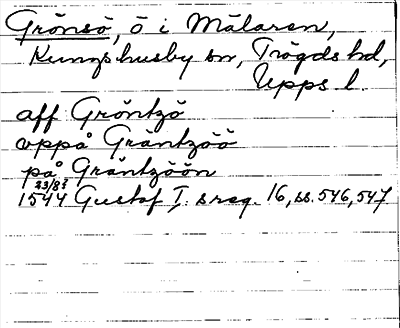 Grönsö, ö i Mälaren,
Kungshusby sn, Trögds hd,
Upps l.
aff Gröntzö
vppå Gräntzöö
på Gräntzöön
23/8?
1544 Gustaf I. s reg. 16, ss. 546, 547